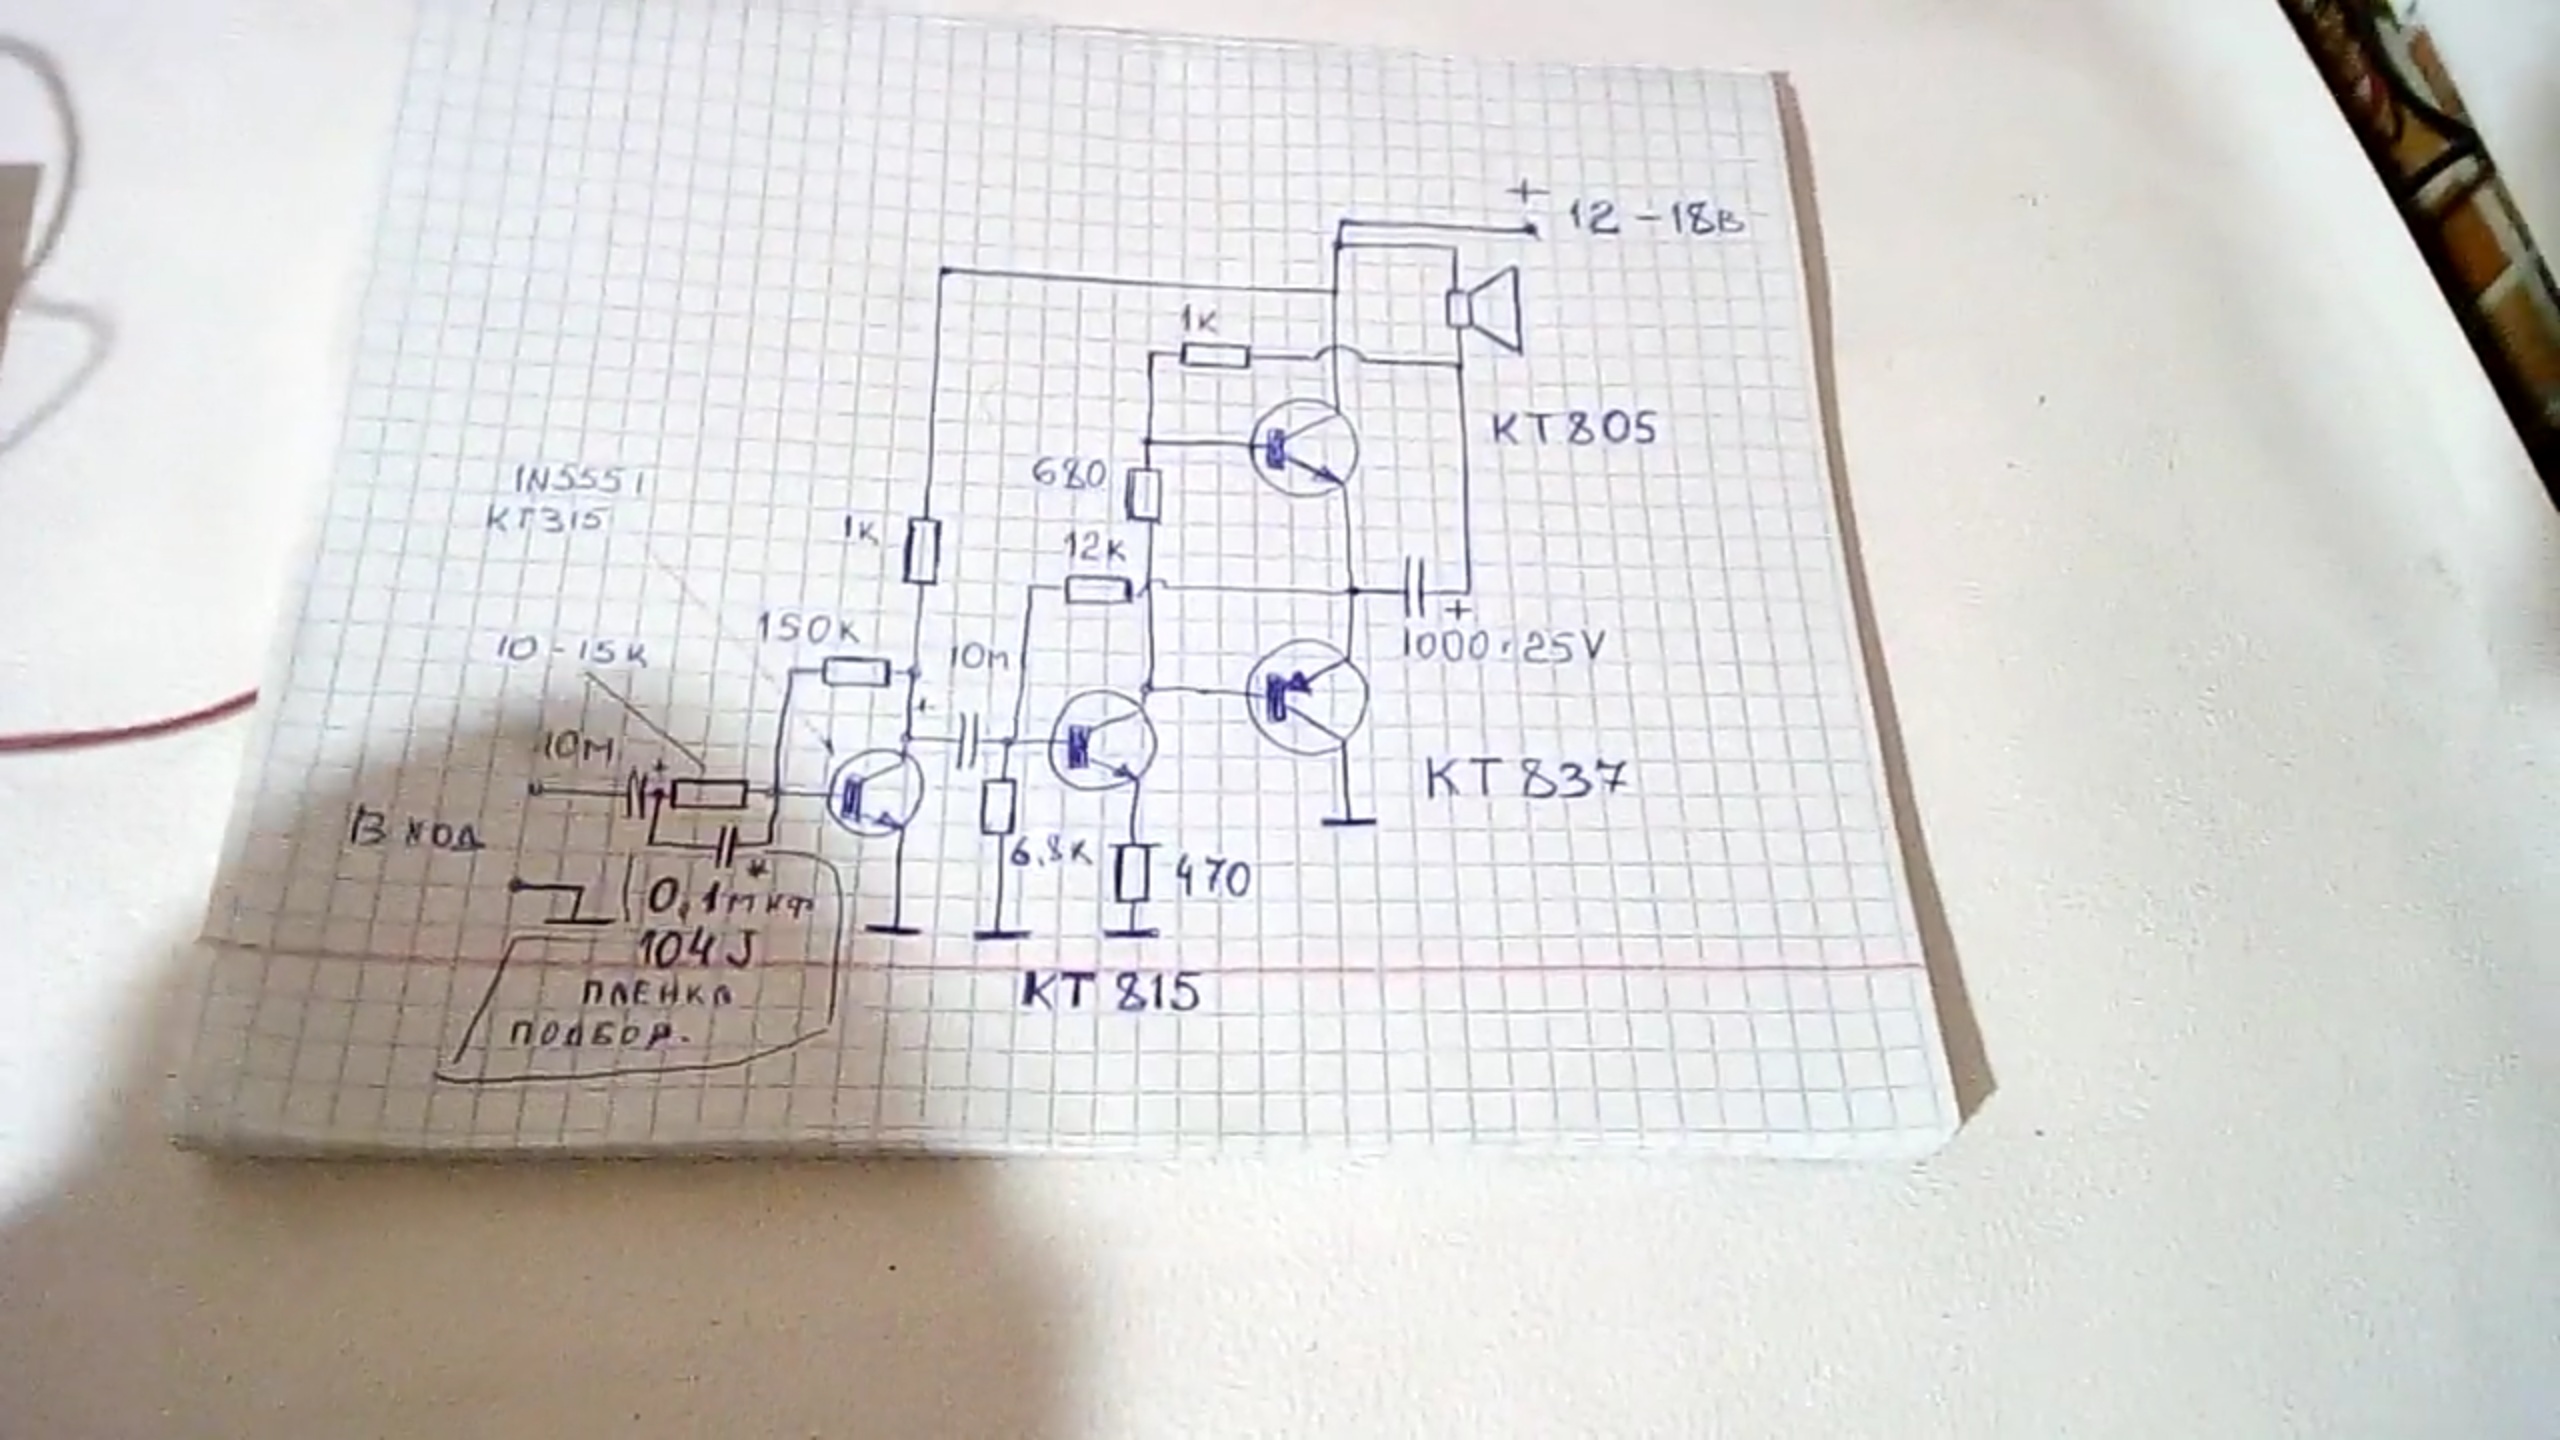 +
12 - 18В
1К
КТ805
680
1N5551
КТ315
1К
12К
150К
10М
+
1000 · 25V
10 - 15К
+
10М
+
КТ 837
ВХОД
6.8К
470
*
0,1мкф
104J
ПЛЕНКА
ПОДБОР.
КТ 815